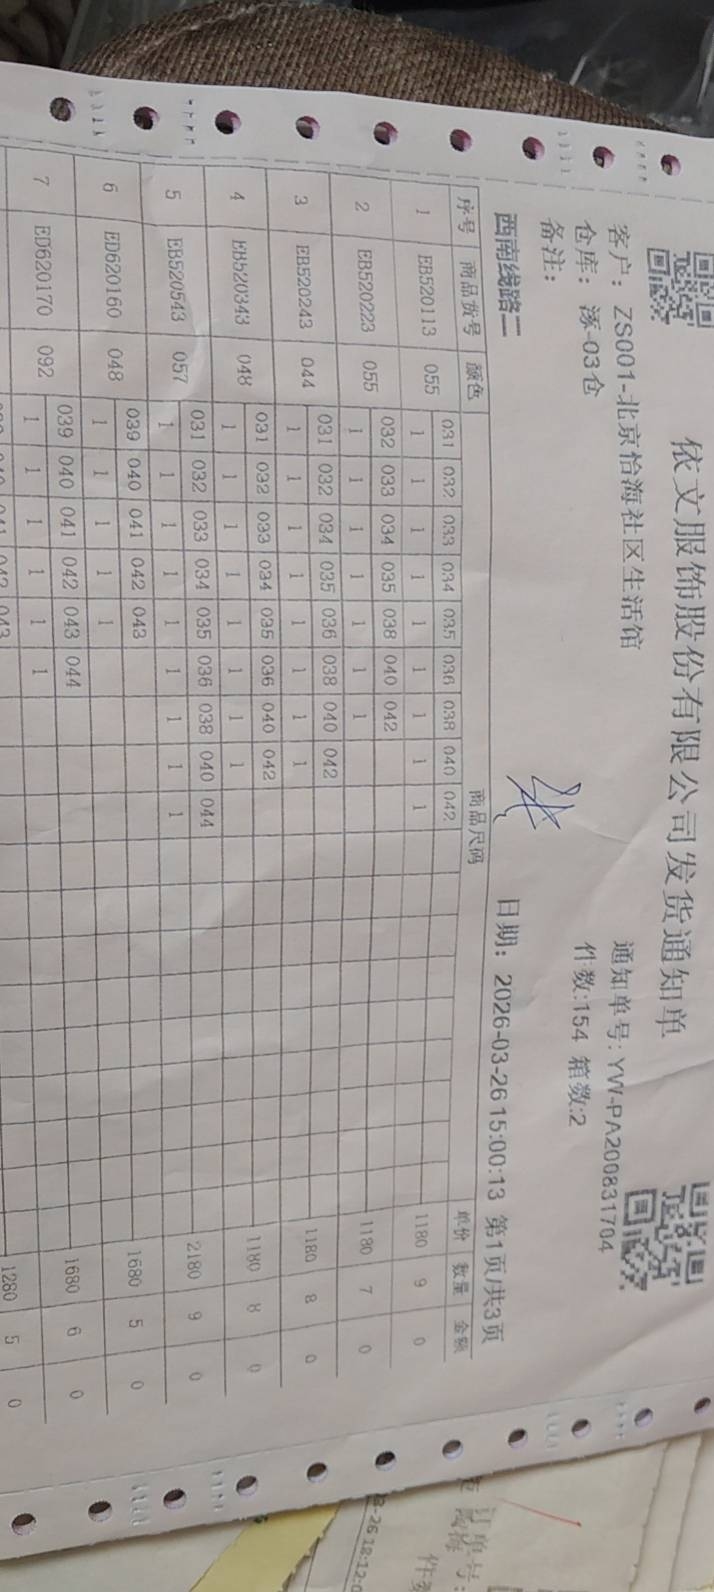 依文服饰股份有限公司发货通知单
客户： ZS001-北京怡海社区生活馆 通知单号: YW-PA200831704
仓库： 涿-03仓 件数:154 箱数:2
备注：
西南线路二 日期： 2026-03-26 15:00:13 第1页/共3页
序号 商品货号 颜色 商品尺码 单价 数量 金额
031 032 033 034 035 036 038 040 042
1 EB520113 055 1 1 1 1 1 1 1 1 1 1180 9 0
032 033 034 035 038 040 042
2 EB520223 055 1 1 1 1 1 1 1 1180 7 0
031 032 034 035 036 038 040 042
3 EB520243 044 1 1 1 1 1 1 1 1 1180 8 0
031 032 033 034 035 036 040 042
4 EB520343 048 1 1 1 1 1 1 1 1 1180 8 0
031 032 033 034 035 036 038 040 044
5 EB520543 057 1 1 1 1 1 1 1 1 1 2180 9 0
039 040 041 042 043
6 ED620160 048 1 1 1 1 1 1680 5 0
039 040 041 042 043 044
7 ED620170 092 1 1 1 1 1 1 1680 6 0
1280 5 0
订单号：
件
-26 18:12:0